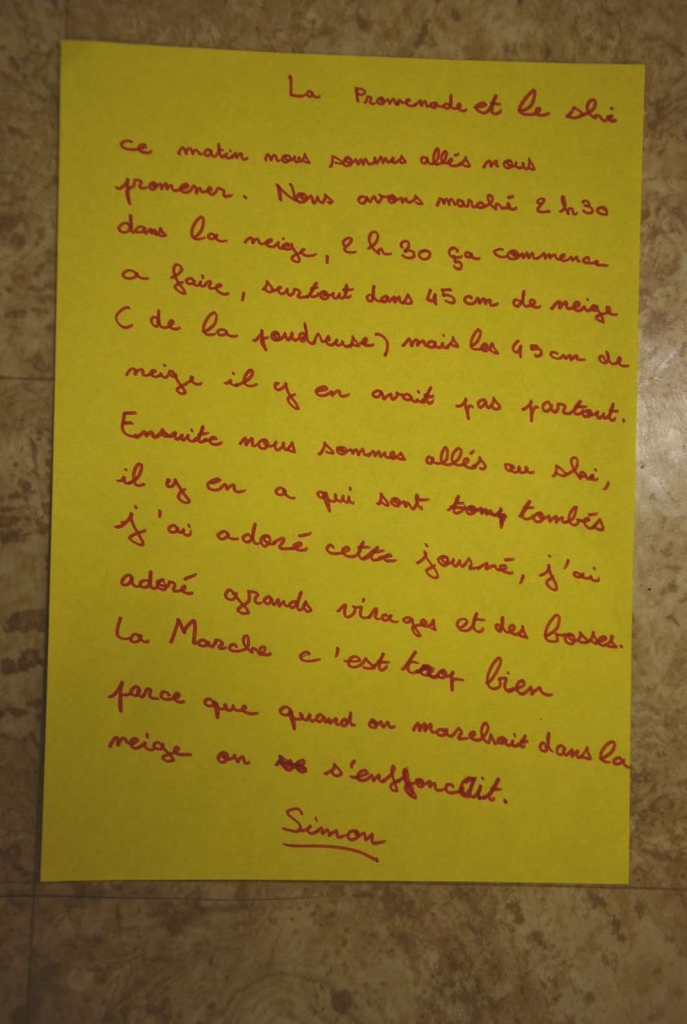 La Promenade et le ski
ce matin nous sommes allés nous
promener. Nous avons marché 2 h 30
dans la neige, 2 h 30 ça commence
a faire, surtout dans 45 cm de neige
( de la poudreuse) mais les 45 cm de
neige il y en avait pas partout.
Ensuite nous sommes allés au ski,
il y en a qui sont tombés
j'ai adoré cette journé, j'ai
adoré grands virages et des bosses.
La Marche c'est trop bien
parce que quand on marchait dans la
neige on s'enffonçait.
Simon